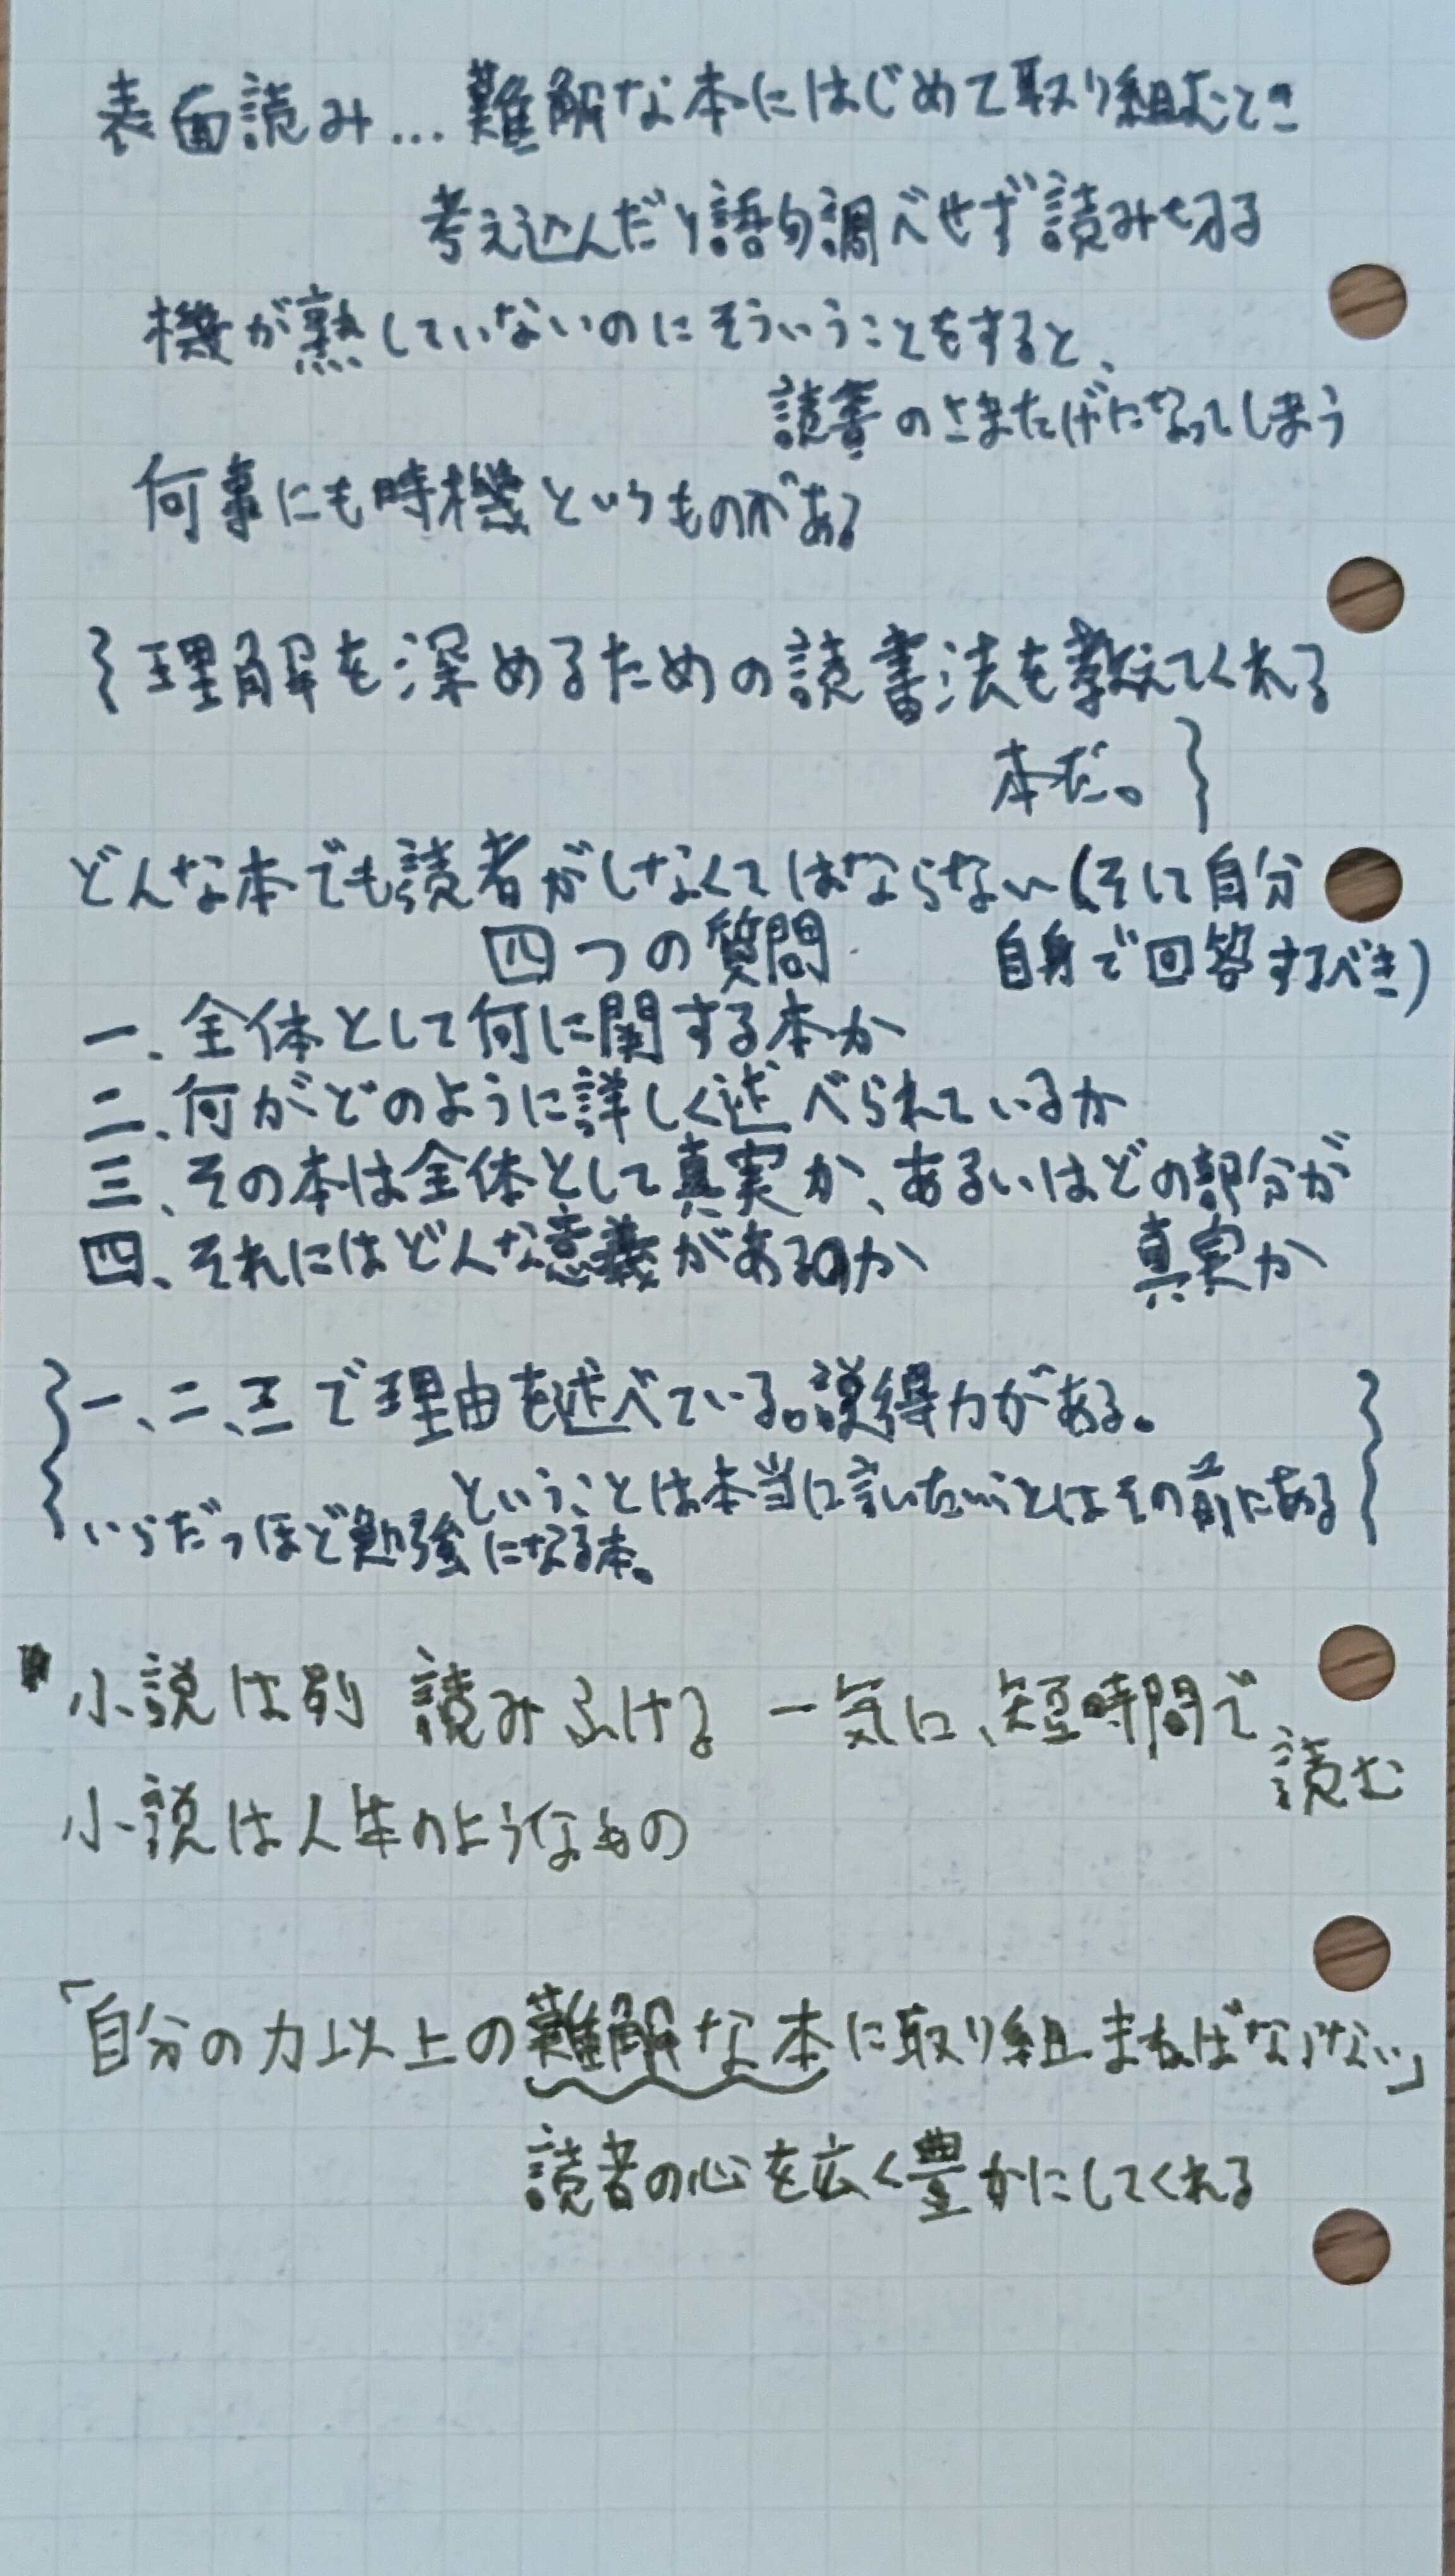 表面読み…難解な本にはじめて取り組むとき
考え込んだり語句調べせず読み切る
機が熟していないのにそういうことをすると、
読書のさまたげになってしまう
何事にも時機というものがある
{理解を深めるための読書法を教えてくれる
本だ。}
どんな本でも読者がしなくてはならない(そして自分
四つの質問 自身で回答するべき)
一、全体として何に関する本か
二、何がどのように詳しく述べられているか
三、その本は全体として真実か、あるいはどの部分が
真実か
四、それにはどんな意義があるのか
{一、二、三で理由を述べている。説得力がある。
ということは本当に言いたいことはその前にある}
いらだつほど勉強になる本。
小説は別 読みふける 一気に、短時間で
読む
小説は人生のようなもの
「自分の力以上の難解な本に取り組まねばならない」
読者の心を広く豊かにしてくれる